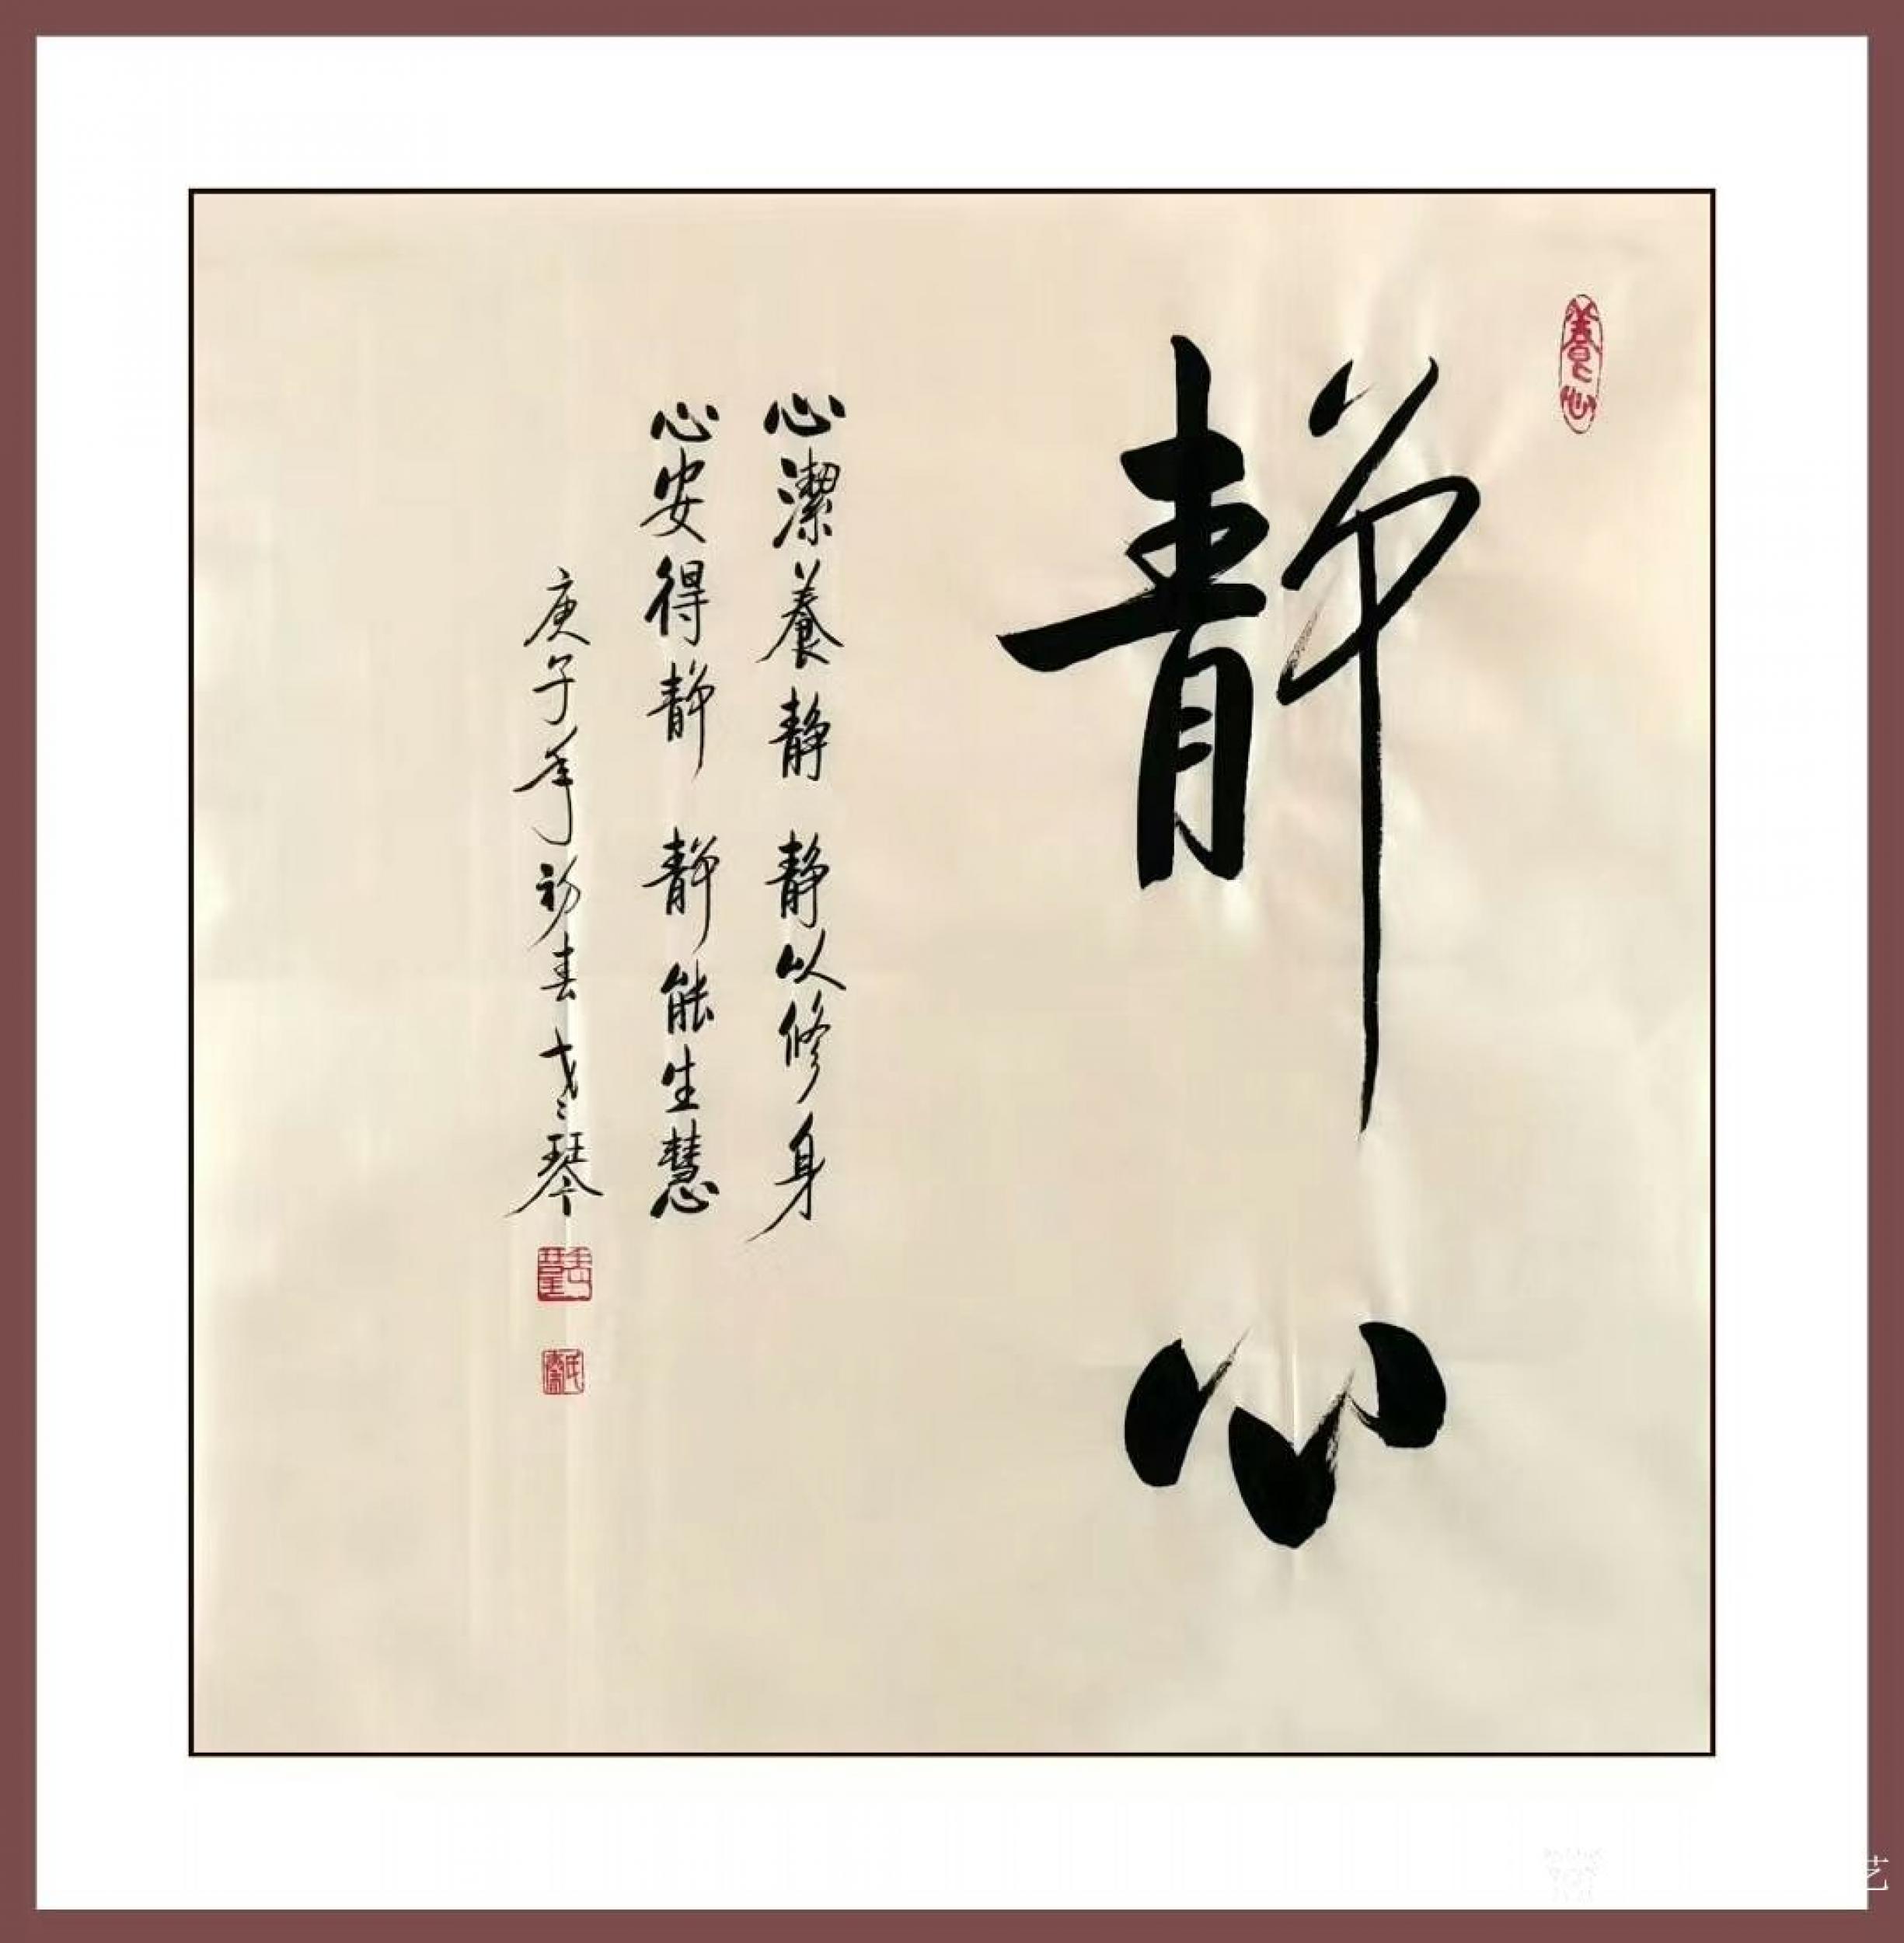 養心
静心
心潔養静 静以修身
心安得静 静能生慧
庚子年初春 琴
艺